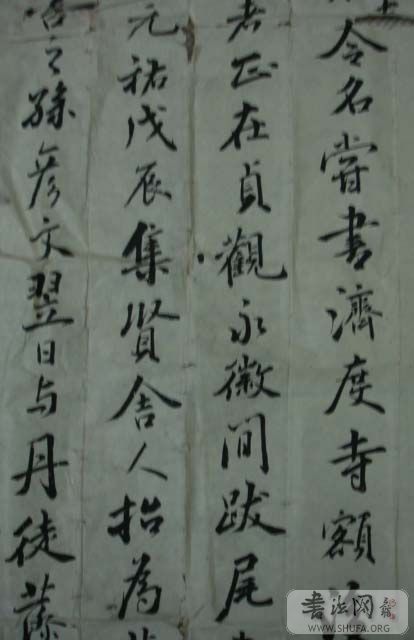 令名嘗書濟度寺額
者正在貞觀永徽間跋尾
元祐戊辰集賢舍人招為
之孫彦文翌日与丹徒
書法网
WWW.SHUFA.ORG